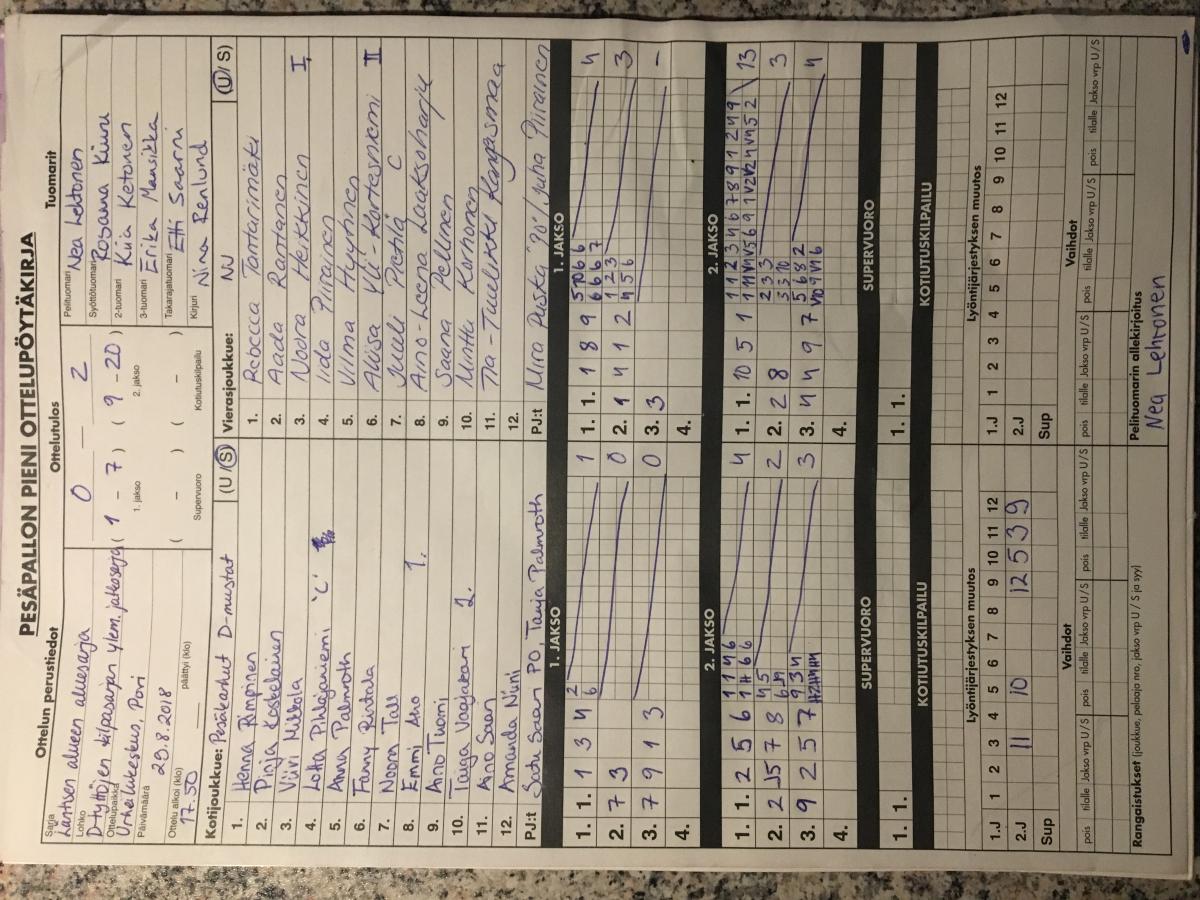 PESÄPALLON PIENI OTTELUPÖYTÄKIRJA
Ottelun perustiedot
Sarja
Läntisen alueen aluesarja
Lohko
D-tyttöjen kilpasarjan ylem. jatkosarja
Ottelupaikka
Urheilukeskus, Pori
Päivämäärä
29.8.2018
Ottelu alkoi (klo)
17.50
päättyi (klo)
Ottelutulos
0 — 2
( 1 - 7 ) ( 9 - 20 )
1. jakso 2. jakso
( - ) ( - )
Supervuoro Kotiutuskilpailu
Tuomarit
Pelituomari Nea Lehtonen
Syöttötuomari Rosanna Kiuru
2-tuomari Kiia Ketonen
3-tuomari Erika Mansikka
Takarajatuomari Etti Saarni
Kirjuri Nina Renlund
Kotijoukkue: Pesäkarhut D-mustat (U / S)
1. Henna Rimpinen
2. Pinja Koskelainen
3. Viivi Mikkola
4. Lotta Pihlajaniemi 'C'
5. Anna Palmroth
6. Fanny Rintala
7. Noora Tall
8. Emmi Aho 1.
9. Aino Tuomi
10. Taiga Vaajakari 2.
11. Aino Saari
12. Amanda Niini
PJ:t Satu Saari PO, Tanja Palmroth
Vierasjoukkue: NJ (U / S)
1. Rebecca Tantarimäki
2. Aada Rantanen
3. Noora Heikkinen I
4. Iida Piirainen
5. Vilma Hyytinen
6. Aliisa Yli-Kortesniemi II
7. Juuli Pietilä C
8. Aino-Leena Laaksoharju
9. Saana Pellinen
10. Minttu Korhonen
11. Tia-Tuulikki Kangasmaa
12.
PJ:t Mira Puska PO, Juha Piirainen
1. JAKSO
1. 1. 1 3 4 2 6 1
2. 7 3 0
3. 7 9 1 3 0
4.
1. JAKSO
1. 1. 1 8 9 5 10 6 6 4
6 6 6 7
2. 1 4 1 2 1 2 3 3
4 5 6
3. 3 -
4.
2. JAKSO
1. 1. 2 5 6 1 1 4 6 4
2. 2 5 7 8 4 5 2
3. 9 2 5 7 9 3 4 3
4.
2. JAKSO
1. 1. 10 5 1 1 1 2 3 4 6 7 8 9 1 2 4 9 13
2. 2 8 2 3 3 3
3 3 10
3. 4 4 9 7 5 6 8 2 4
4.
SUPERVUORO
1. 1.
SUPERVUORO
1. 1.
KOTIUTUSKILPAILU
KOTIUTUSKILPAILU
Lyöntijärjestyksen muutos
1.J 1 2 3 4 5 6 7 8 9 10 11 12
2.J 11 10 12 5 3 9
Sup
Lyöntijärjestyksen muutos
1.J 1 2 3 4 5 6 7 8 9 10 11 12
2.J
Sup
Vaihdot
pois tilalle Jakso vrp U/S pois tilalle Jakso vrp U/S pois tilalle Jakso vrp U/S
Vaihdot
pois tilalle Jakso vrp U/S pois tilalle Jakso vrp U/S pois tilalle Jakso vrp U/S
Rangaistukset (joukkue, pelaaja nro, jakso vrp U / S ja syy)
Pelituomarin allekirjoitus
Nea Lehtonen